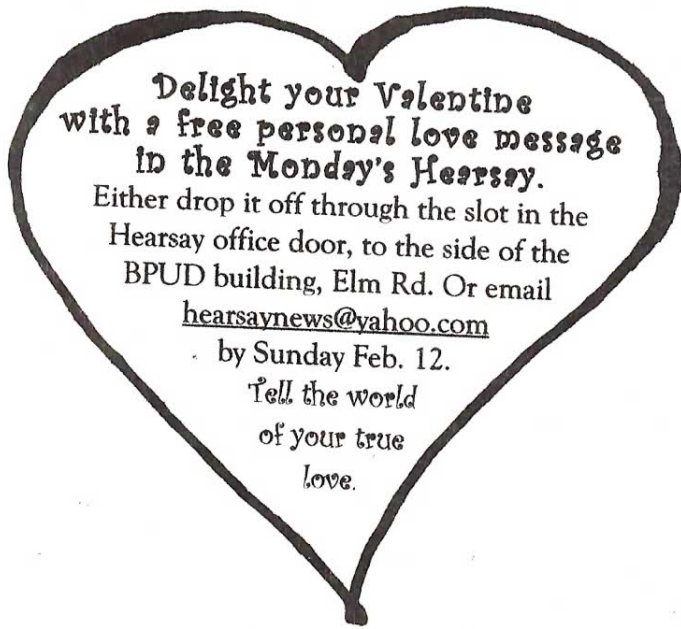 Delight your Valentine
with a free personal love message
in the Monday's Hearsay.
Either drop it off through the slot in the
Hearsay office door, to the side of the
BPUD building, Elm Rd. Or email
hearsaynews@yahoo.com
by Sunday Feb. 12.
Tell the world
of your true
love.